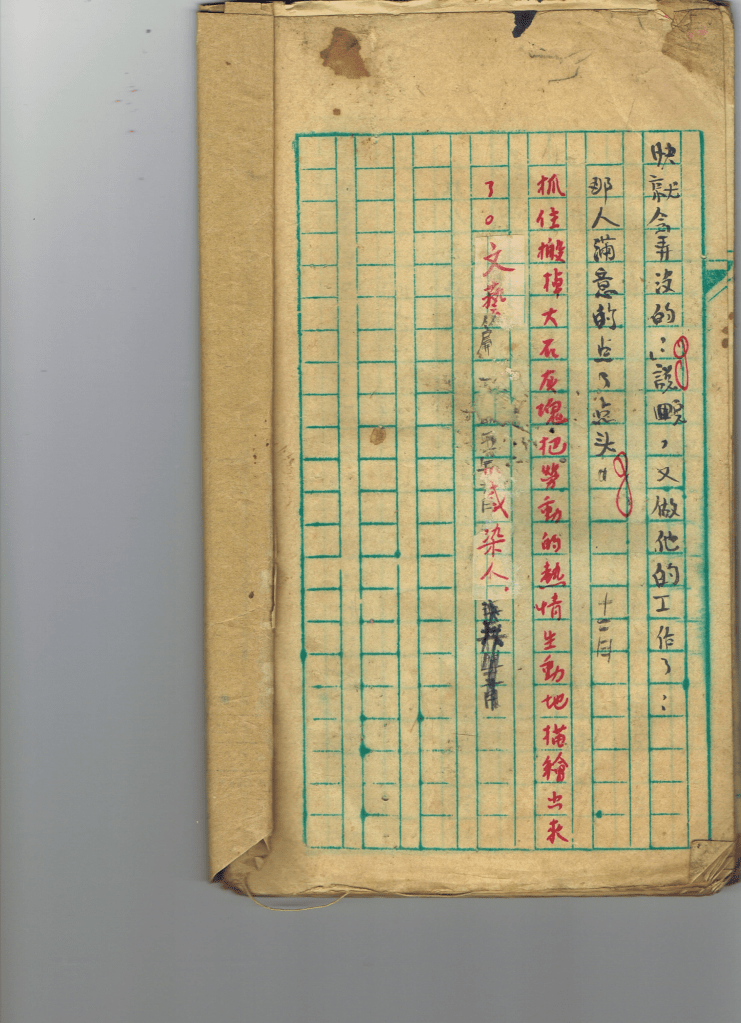 快就会弄没的。」說畢，又做他的工作了：
那人滿意的点了点头。 十二月
抓住搬掉大石灰塊，把勞動的熱情生動地描繪出來
了。文藝 感染人，